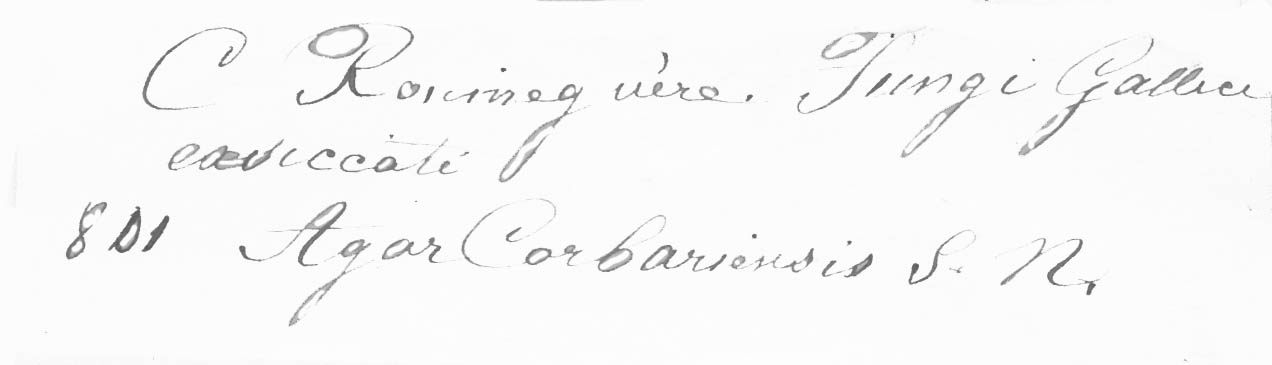 C Roumeguère. Fungi Gallici
exsiccati
801 Agar Corbariensis S. N.